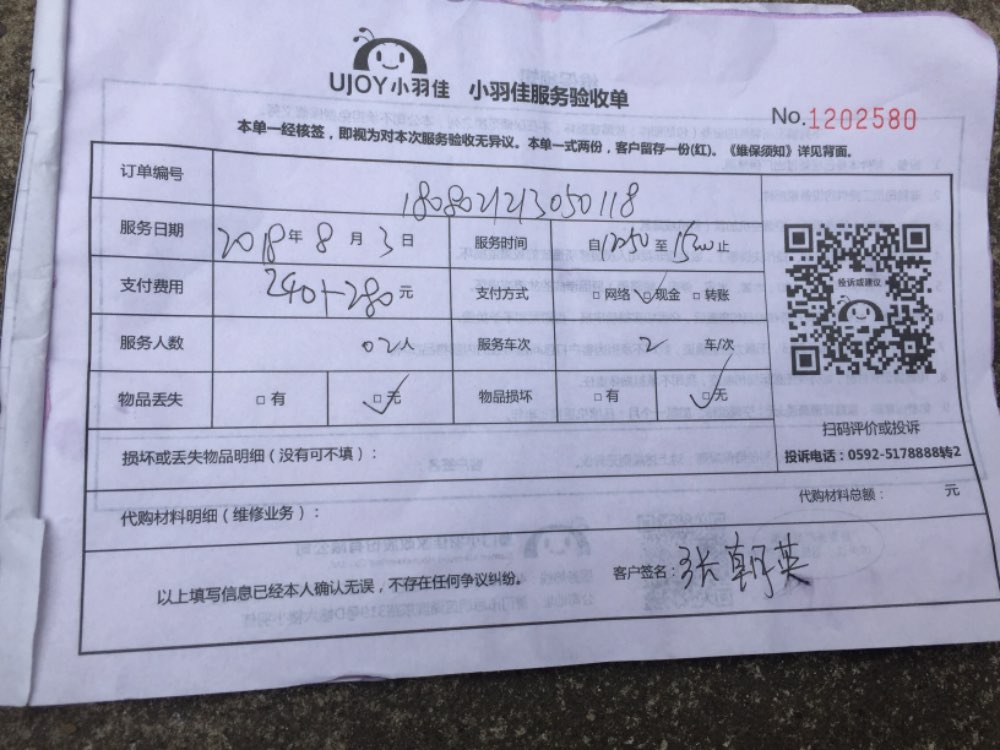 UJOY小羽佳 小羽佳服务验收单
No.1202580
本单一经核签，即视为对本次服务验收无异议。本单一式两份，客户留存一份(红)。《维保须知》详见背面。
订单编号 1808021213050118
服务日期 2018年8月3日 服务时间 自1250至1500止
支付费用 240+280元 支付方式 □网络 □现金 □转账
服务人数 02人 服务车次 2 车/次
物品丢失 □有 □无 物品损坏 □有 □无
投诉或建议
扫码评价或投诉
投诉电话：0592-5178888转2
损坏或丢失物品明细（没有可不填）：
代购材料明细（维修业务）： 代购材料总额： 元
以上填写信息已经本人确认无误，不存在任何争议纠纷。 客户签名：张朝英